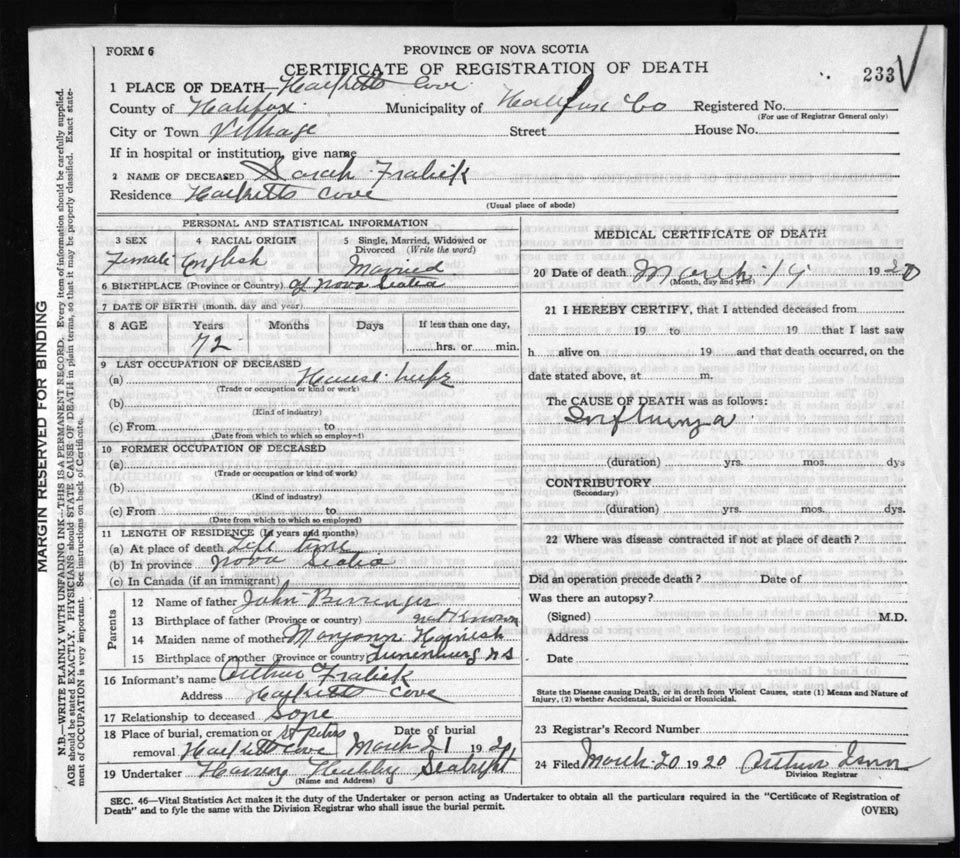 FORM 6
PROVINCE OF NOVA SCOTIA
CERTIFICATE OF REGISTRATION OF DEATH
233
1 PLACE OF DEATH— Cove
County of Halifax Municipality of Halifax Co Registered No.
(For use of Registrar General only)
City or Town Village Street House No.
If in hospital or institution, give name
2 NAME OF DECEASED Sarah Fralick
Residence Cove
(Usual place of abode)
PERSONAL AND STATISTICAL INFORMATION
3 SEX 4 RACIAL ORIGIN 5 Single, Married, Widowed or Divorced (Write the word)
Female English Married
6 BIRTHPLACE (Province or Country) of Nova Scotia
7 DATE OF BIRTH (month, day and year)
8 AGE Years Months Days If less than one day,
72 hrs. or min.
9 LAST OCCUPATION OF DECEASED
(a)
(Trade or occupation or kind or work)
(b)
(Kind of industry)
(c) From to
(Date from which to which so employed)
10 FORMER OCCUPATION OF DECEASED
(a)
(Trade or occupation or kind of work)
(b)
(Kind of industry)
(c) From to
(Date from which to which so employed)
11 LENGTH OF RESIDENCE (In years and months)
(a) At place of death Life time
(b) In province Nova Scotia
(c) In Canada (if an immigrant)
Parents
12 Name of father John
13 Birthplace of father (Province or country) not Known
14 Maiden name of mother
15 Birthplace of mother (Province or country) Lunenburg N S
16 Informant's name Arthur Fralick
Address Cove
17 Relationship to deceased Sone
18 Place of burial, cremation or removal St Peters Cove Date of burial March 21 1920
19 Undertaker Harvey Seabright
(Name and Address)
MEDICAL CERTIFICATE OF DEATH
20 Date of death March 19 1920
(Month, day and year)
21 I HEREBY CERTIFY, that I attended deceased from
19 to 19 that I last saw
h alive on 19 and that death occurred, on
date stated above, at m.
The CAUSE OF DEATH was as follows:
Influenza
(duration) yrs. mos. dys
CONTRIBUTORY
(Secondary)
(duration) yrs. mos. dys.
22 Where was disease contracted if not at place of death?
Did an operation precede death? Date of
Was there an autopsy?
(Signed) M.D.
Address
Date
State the Disease causing Death, or in death from Violent Causes, state (1) Means and Nature of
Injury, (2) whether Accidental, Suicidal or Homicidal.
23 Registrar's Record Number
24 Filed March 20 1920 Arthur Isnor
Division Registrar
SEC. 46—Vital Statistics Act makes it the duty of the Undertaker or person acting as Undertaker to obtain all the particulars required in the "Certificate of Registration of
Death" and to fyle the same with the Division Registrar who shall issue the burial permit.
(OVER)
MARGIN RESERVED FOR BINDING
N.B.—WRITE PLAINLY WITH UNFADING INK—THIS IS A PERMANENT RECORD. Every item of information should be carefully supplied.
AGE should be stated EXACTLY. PHYSICIANS should STATE CAUSE OF DEATH in plain terms, so that it may be properly classified. Exact statement of OCCUPATION is very important. See instructions on back of Certificate.